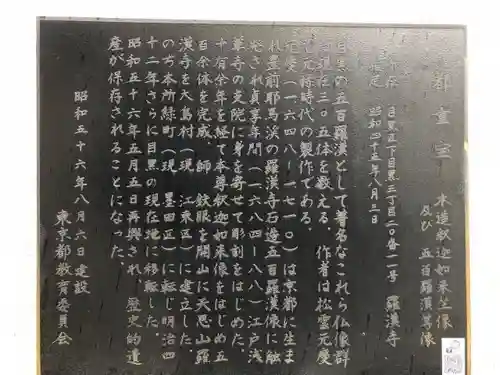 都重宝 木造釈迦如来坐像
及び 五百羅漢等像
所在 目黒区下目黒三丁目二〇番一一号 羅漢寺
昭和四十五年八月三日
目黒の五百羅漢として著名なこれら仏像群
は現在三〇五体を数える。作者は松雲元慶
で元禄時代の製作である。
元慶(一六四八-一七一〇)は京都に生ま
れ豊前耶馬渓の羅漢寺石造五百羅漢像に触
発され貞享年間(一六八四-八八)江戸浅
草寺の支院に身を寄せて彫刻をはじめた。
十有余年を経て本尊釈迦如来像をはじめ五
百余体を完成、師 鉄眼を開山に天恩山羅
漢寺を大島村(現 江東区)に建立した。
のち本所緑町(現 墨田区)に転じ明治四
十二年さらに目黒の現在地に移転した。
昭和五十六年五月五日再興され、歴史的遺
産が保存されることになった。
昭和五十六年八月六日建設
東京都教育委員会